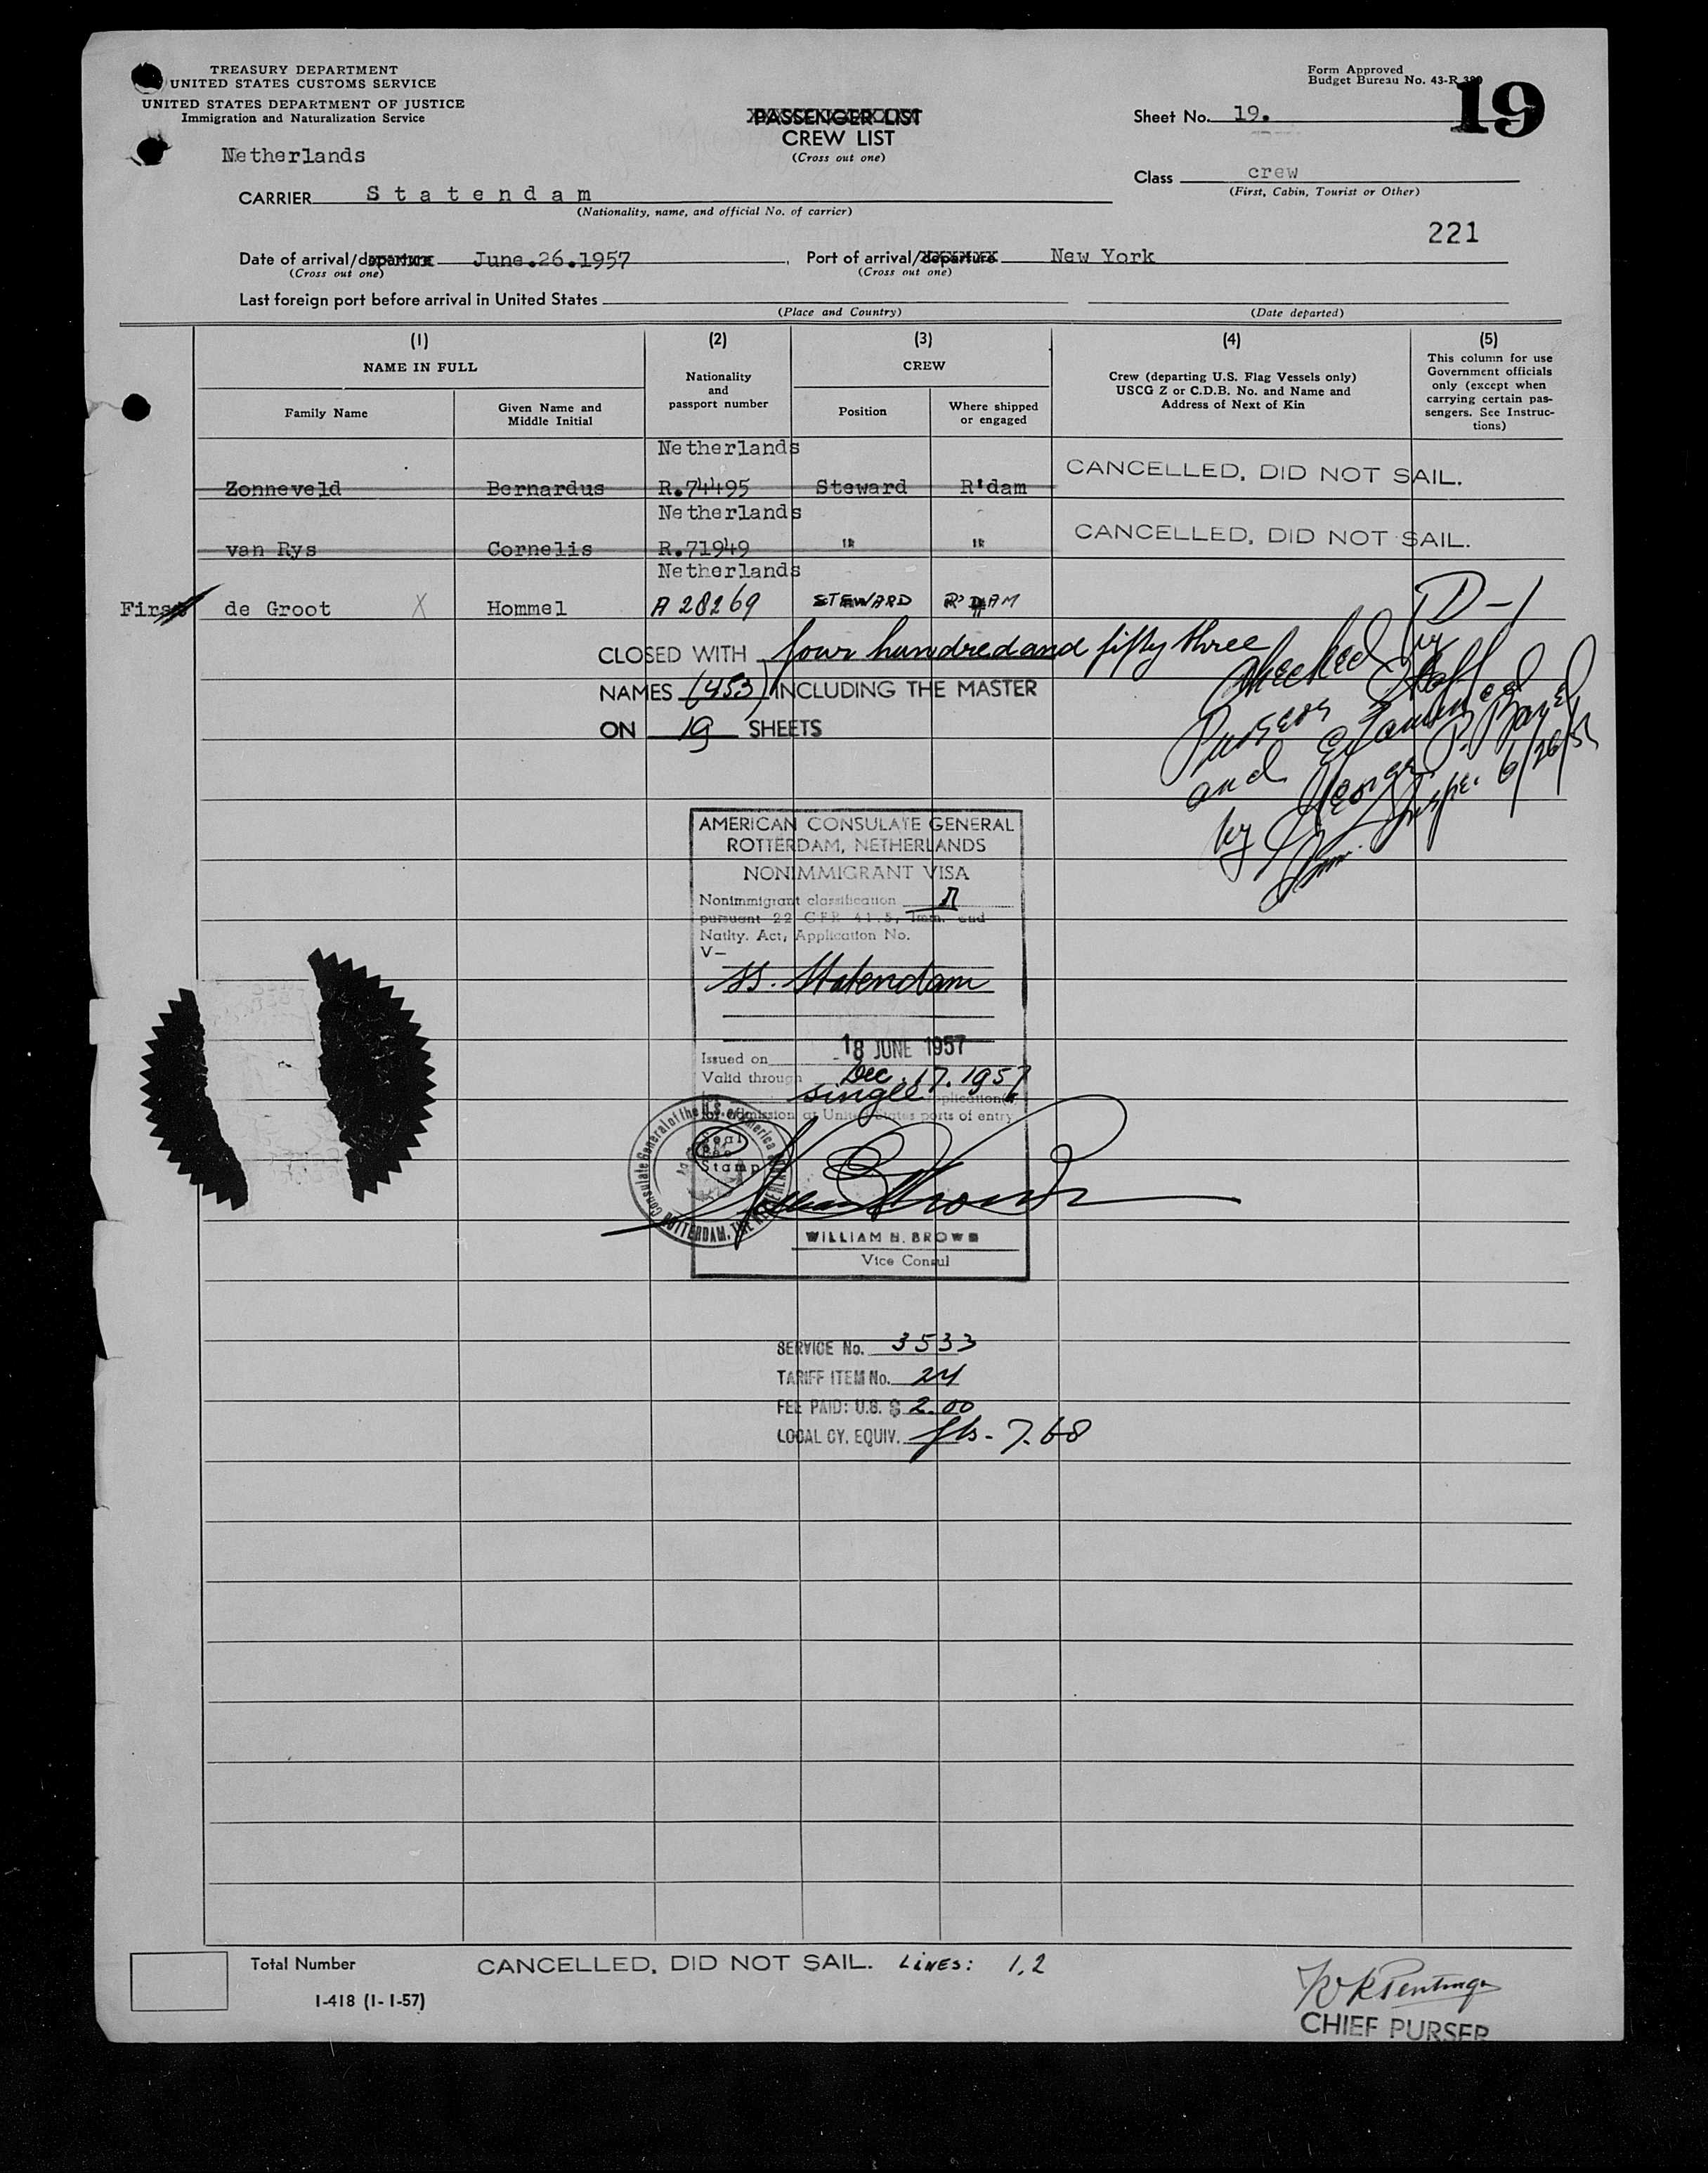 TREASURY DEPARTMENT
UNITED STATES CUSTOMS SERVICE
UNITED STATES DEPARTMENT OF JUSTICE
Immigration and Naturalization Service
Form Approved
Budget Bureau No. 43-R
19
PASSENGER LIST
CREW LIST
(Cross out one)
Sheet No. 19.
Netherlands
CARRIER Statendam
(Nationality, name, and official No. of carrier)
Class crew
(First, Cabin, Tourist or Other)
221
Date of arrival/departure June.26.1957
(Cross out one)
Port of arrival/departure New York
(Cross out one)
Last foreign port before arrival in United States
(Place and Country)
(Date departed)
(1)
NAME IN FULL
Family Name
Given Name and
Middle Initial
(2)
Nationality
and
passport number
(3)
CREW
Position
Where shipped
or engaged
(4)
Crew (departing U.S. Flag Vessels only)
USCG Z or C.D.B. No. and Name and
Address of Next of Kin
(5)
This column for use
Government officials
only (except when
carrying certain pas-
sengers. See Instruc-
tions)
Netherlands
Zonneveld Bernardus R.74495 Steward R'dam CANCELLED, DID NOT SAIL.
Netherlands
van Rys Cornelis R.71949 " " CANCELLED, DID NOT SAIL.
Netherlands
First de Groot X Hommel A 28269 STEWARD R'DAM D-1
CLOSED WITH four hundred and fifty three
NAMES (453) INCLUDING THE MASTER
ON 19 SHEETS
Checked by
Pursers Staff
and Examined
by George P.
Imm. Inspe. 6/26/57
AMERICAN CONSULATE GENERAL
ROTTERDAM, NETHERLANDS
NONIMMIGRANT VISA
Nonimmigrant classification D
pursuant 22 CFR 41.5, Imm. and
Natlty. Act, Application No.
V-
ss. Statendam
Issued on 18 JUNE 1957
Valid through Dec. 17. 1957
for single application(s)
for admission at United States ports of entry
Consulate General of the U.S. of America
ROTTERDAM, THE NETHERLANDS
Seal
Fee
Stamp
WILLIAM H. BROWN
Vice Consul
SERVICE No. 3533
TARIFF ITEM No. 24
FEE PAID: U.S. $ 2.00
LOCAL CY. EQUIV. fls- 7.68
Total Number
CANCELLED, DID NOT SAIL. LINES: 1,2
I-418 (1-1-57)
CHIEF PURSER